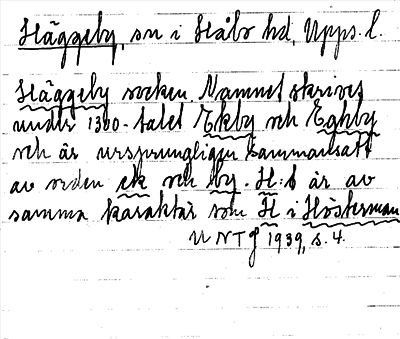 Häggeby, sn i Håbo hd, Upps. l.
Häggeby socken. Namnet skrives
under 1300-talet Ekby och Eghby
och är ursprungligen sammansatt
av orden ek och by. H:t är av
samma karaktär som H i Hösterman
UNT 1939, s. 4.